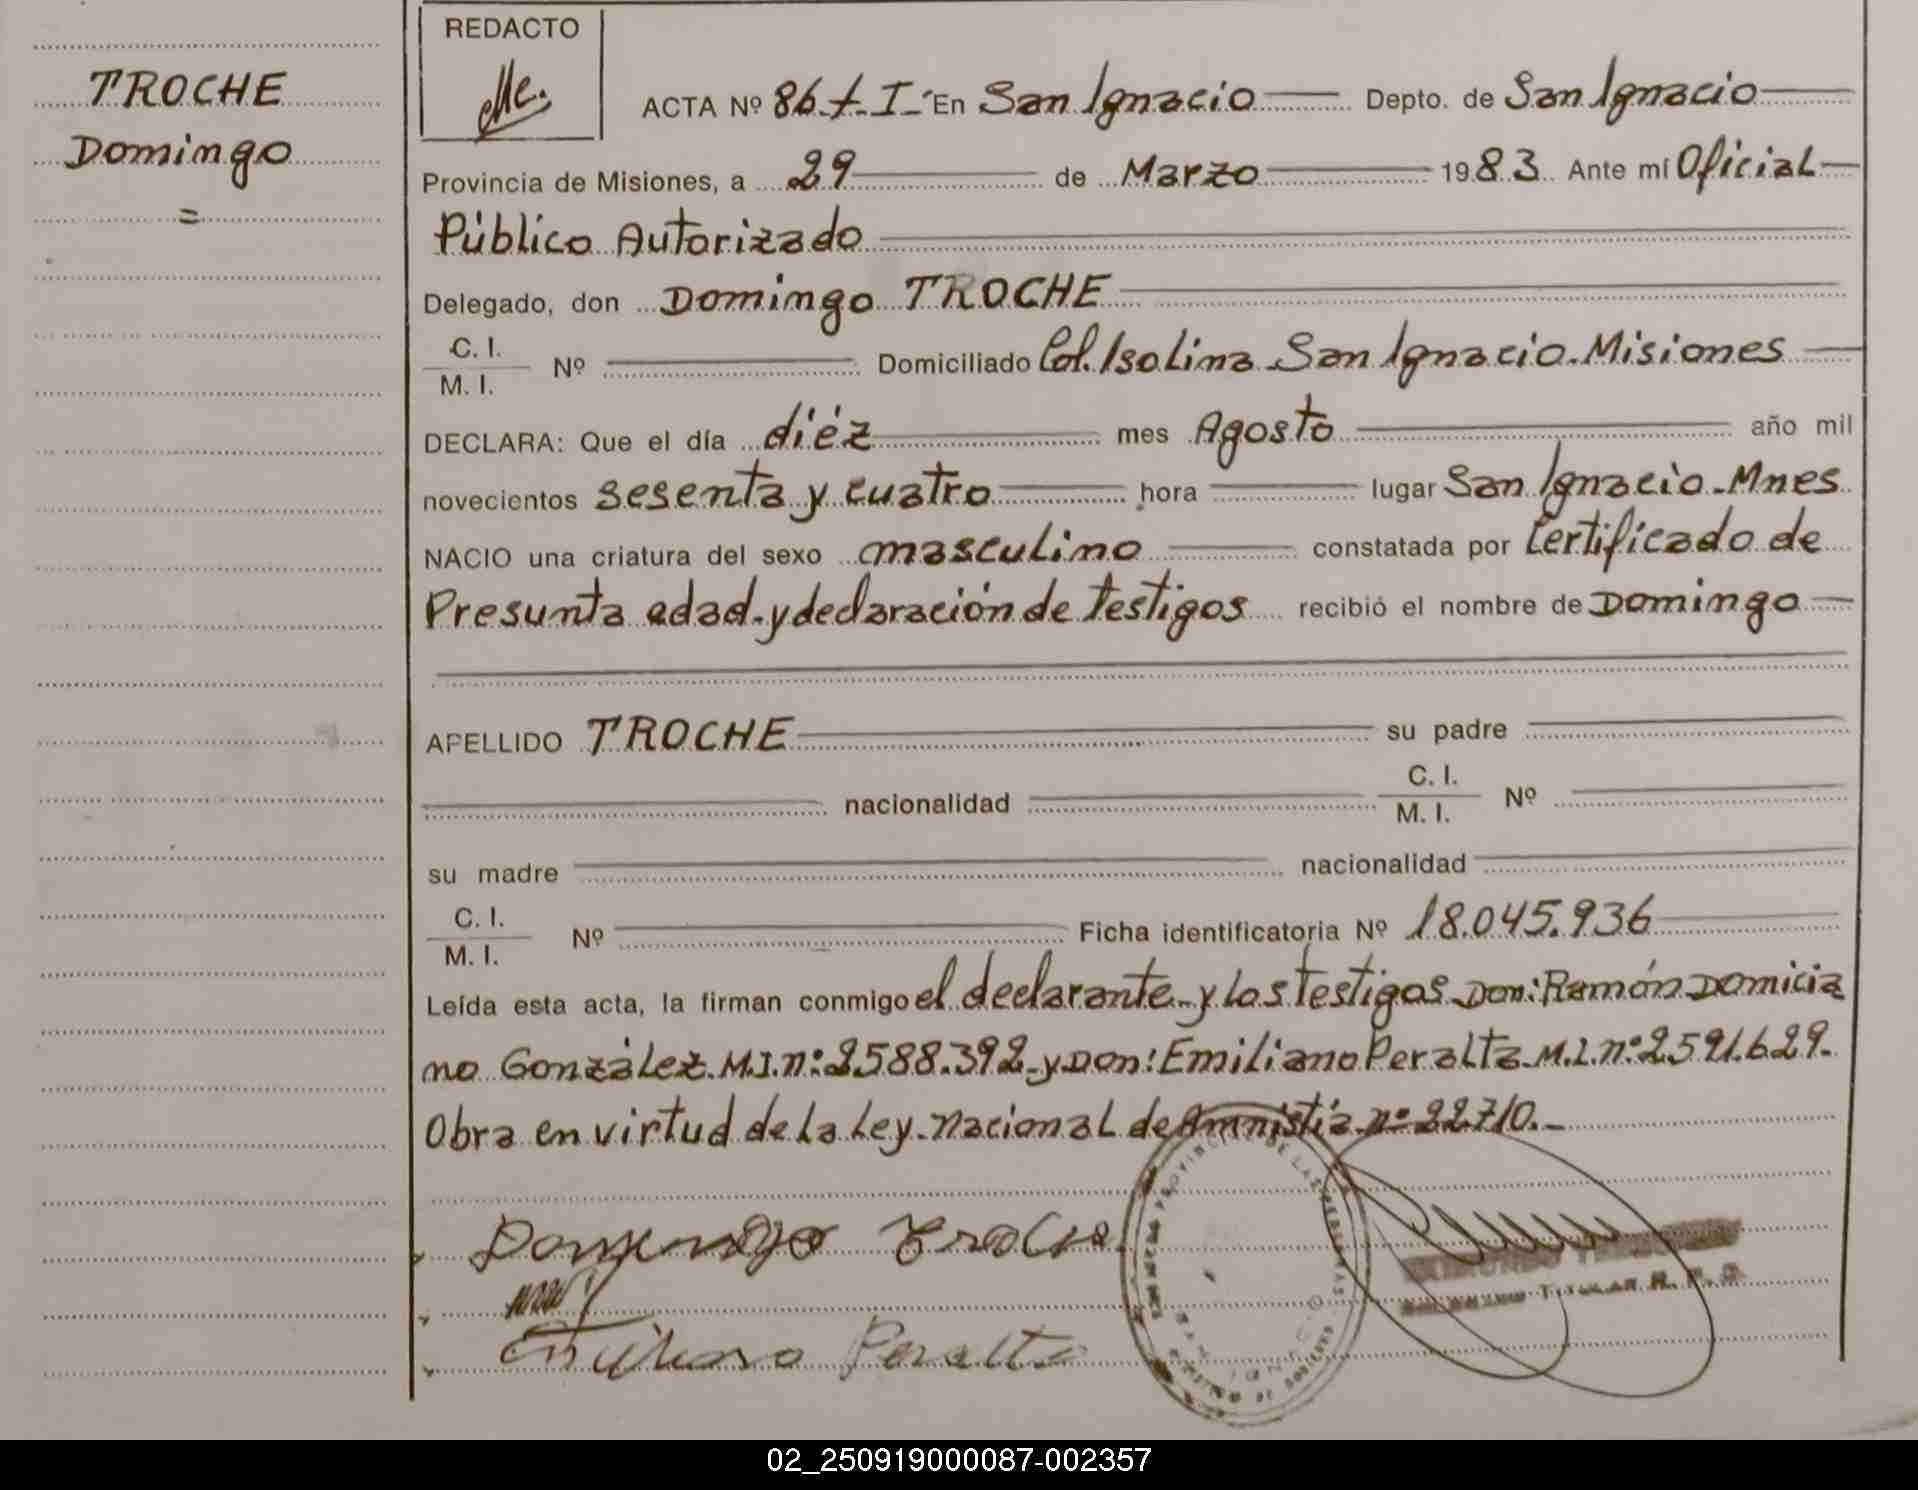 REDACTO
TROCHE
Domingo
=
ACTA Nº 86 t. I- En San Ignacio Depto. de San Ignacio
Provincia de Misiones, a 29 de Marzo 1983 Ante mí Oficial
Público Autorizado
Delegado, don Domingo TROCHE
C. I.
M. I. Nº Domiciliado Col. Isolina San Ignacio. Misiones
DECLARA: Que el día diéz mes Agosto año mil
novecientos sesenta y cuatro hora lugar San Ignacio. Mnes
NACIO una criatura del sexo masculino constatada por Certificado de
Presunta edad. y declaración de testigos recibió el nombre de Domingo
APELLIDO TROCHE su padre
nacionalidad C. I.
M. I. Nº
su madre nacionalidad
C. I.
M. I. Nº Ficha identificatoria Nº 18.045.936
Leída esta acta, la firman conmigo el declarante y los testigos Don: Ramón Domicia
no González. M.I. n: 2588.392 y Don: Emiliano Peralta M.I. nº 2.591.629.
Obra en virtud de la Ley. Nacional de Amnistía nº 22710.-
PROVINCIA DE
Emiliano Peralta
TITULAR R. P.
02_250919000087-002357